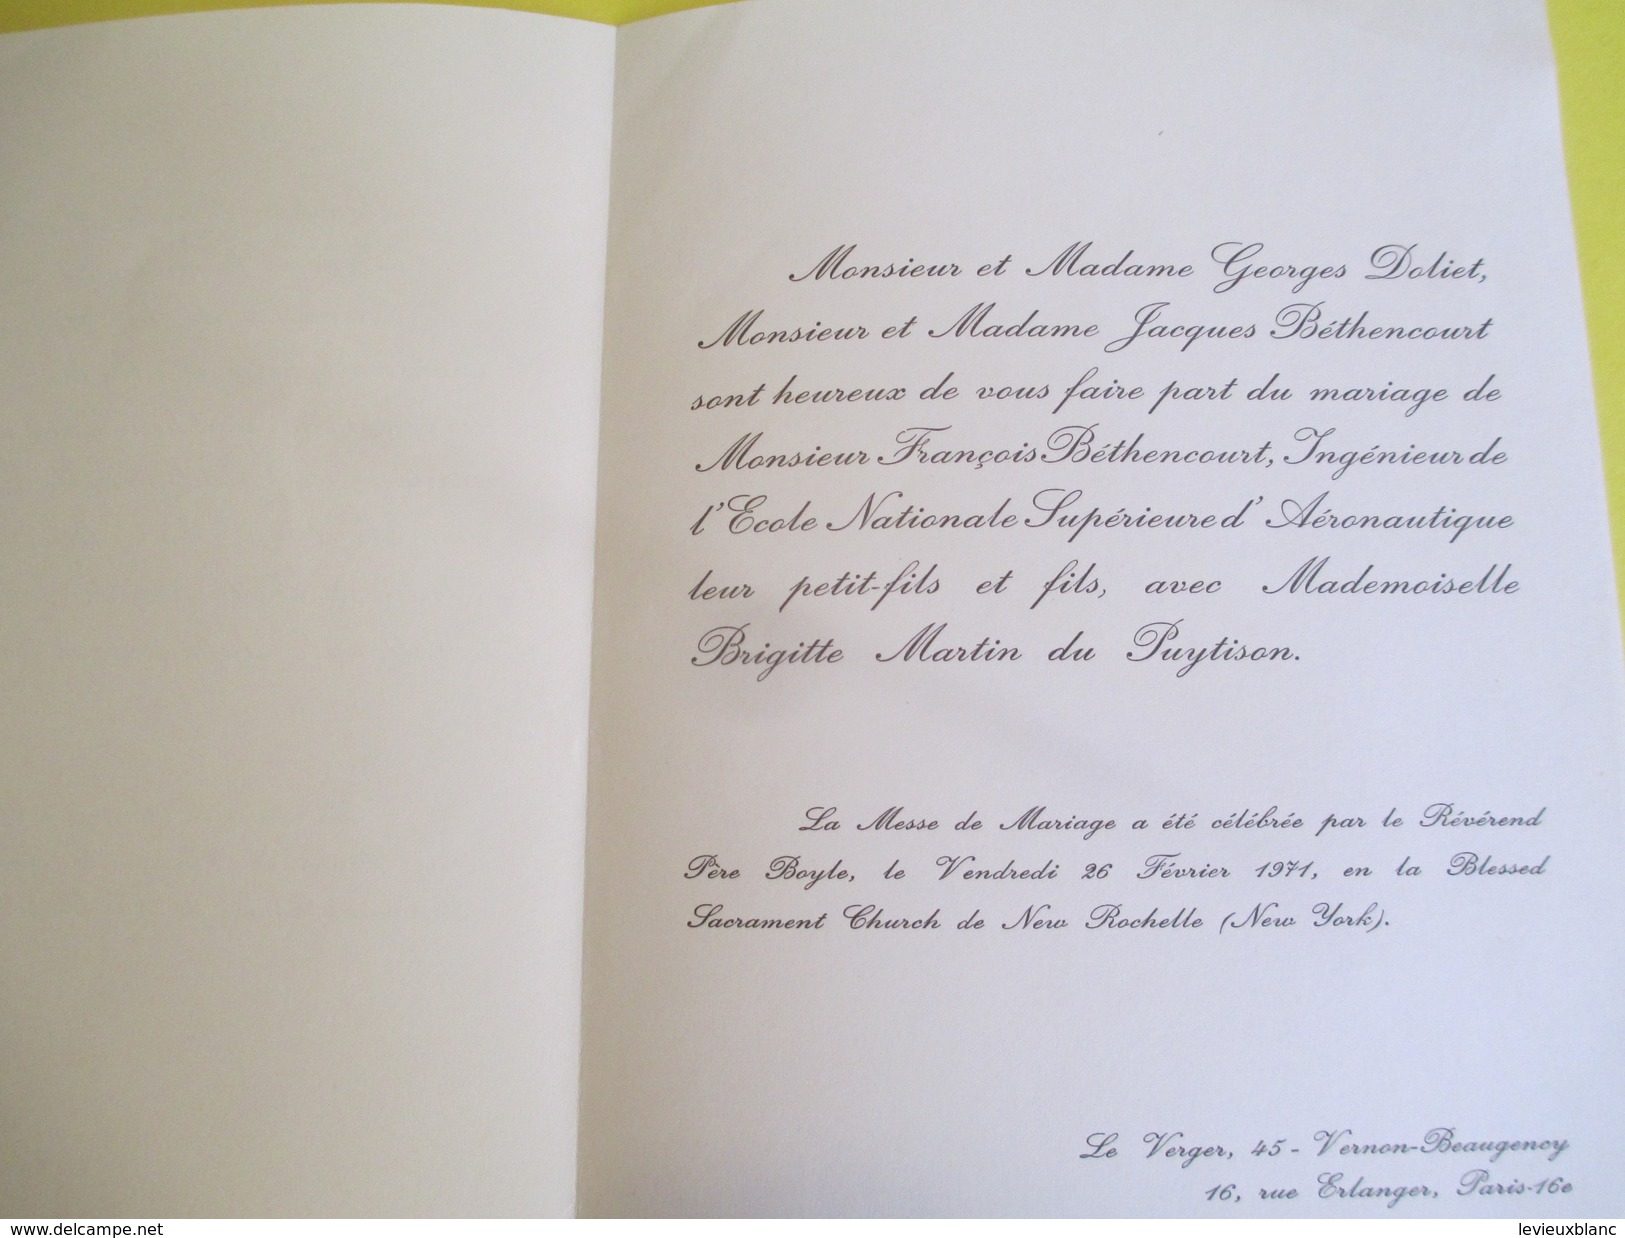 Monsieur et Madame Georges Doliet,
Monsieur et Madame Jacques Béthencourt
sont heureux de vous faire part du mariage de
Monsieur François Béthencourt, Ingénieur de
l'Ecole Nationale Supérieure d'Aéronautique
leur petit-fils et fils, avec Mademoiselle
Brigitte Martin du Puytison.
La Messe de Mariage a été célébrée par le Révérend
Père Boyle, le Vendredi 26 Février 1971, en la Blessed
Sacrament Church de New Rochelle (New York).
Le Verger, 45 - Vernon-Beaugency
16, rue Erlanger, Paris-16e
www.delcampe.net
levieuxblanc